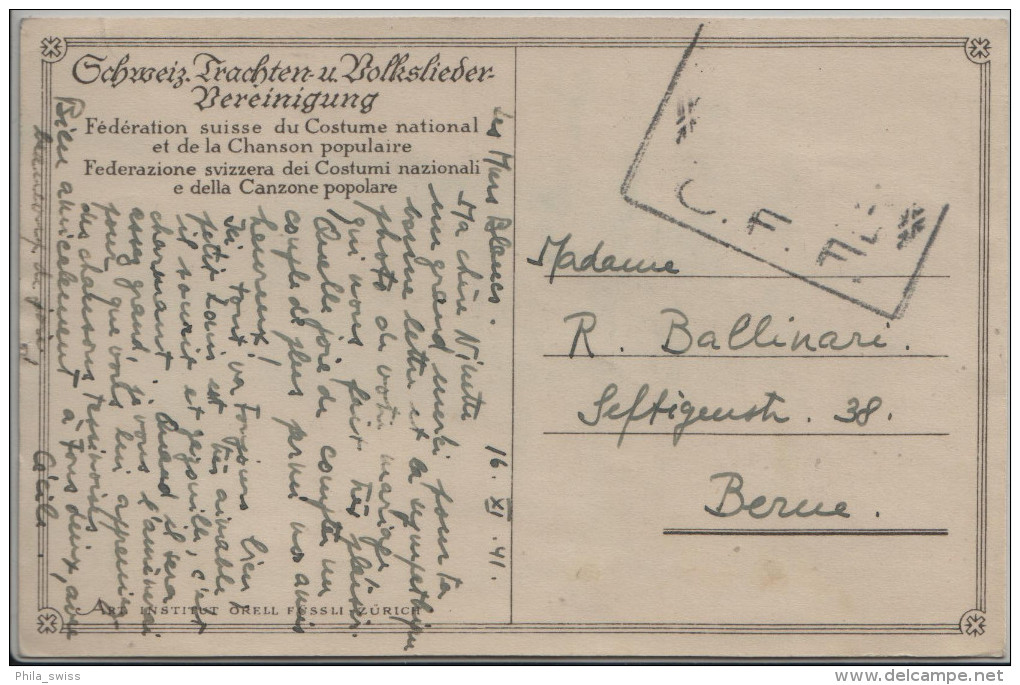 Schweiz. Trachten- u. Volkslieder-
Vereinigung
Fédération suisse du Costume national
et de la Chanson populaire
Federazione svizzera dei Costumi nazionali
e della Canzone popolare
Les Murs Blancs. 16. XI. 41.
Ma chère Ninette
un grand merci pour ta
bonne lettre et la sympathique
photo de votre mariage
qui nous fait très plaisir.
Quelle joie de compter un
couple de plus parmi nos amis
heureux!
Ici, tout va toujours bien,
petit Louis est très aimable
il sourit et gazouille, c'est
charmant! Quand il sera
assez grand, je vous l'amènerai
pour que vous lui appreniez
des chansons tessinoises
Bien amicalement à tous deux, avec
Cécile
ART. INSTITUT ORELL FÜSSLI · ZÜRICH
C. F. F.
Madame
R. Ballinari.
Seftigenstr. 38.
Berne.
Phila_swiss
delcampe.net